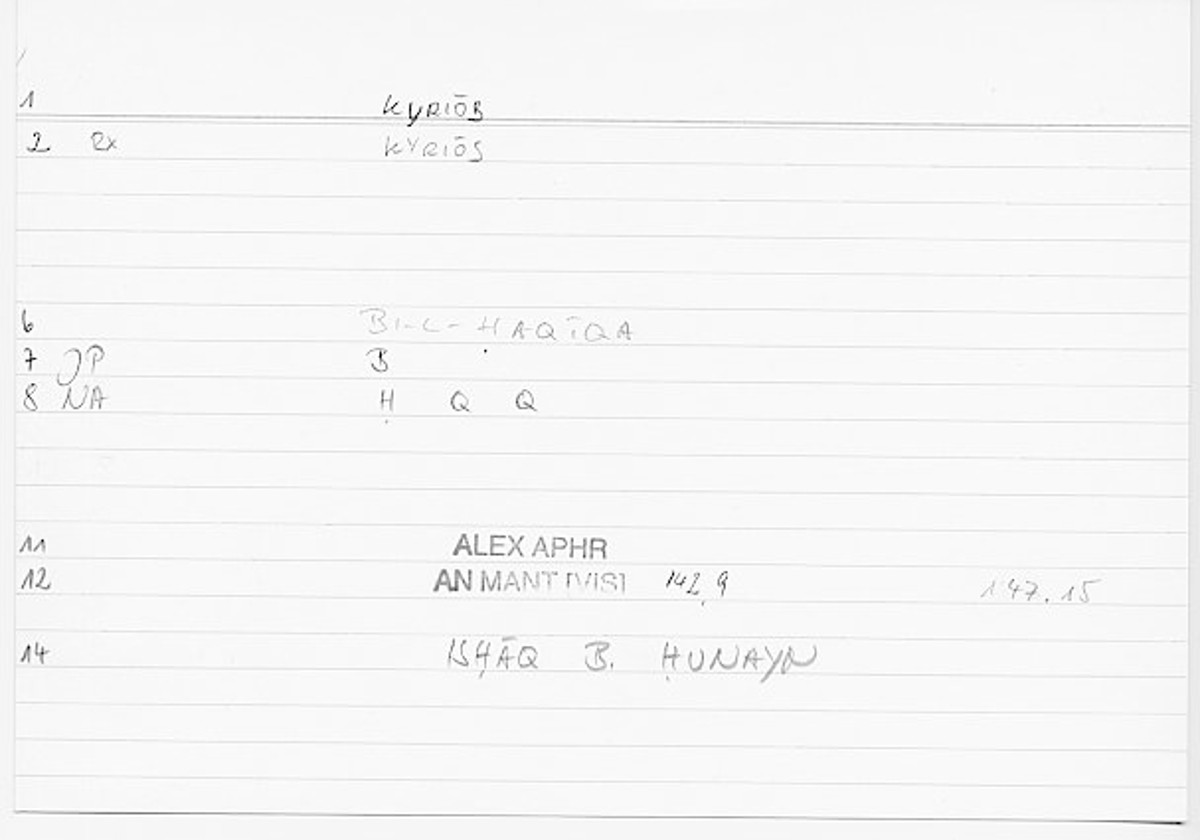 1 KYRIŌS
2 RX KYRIŌS
6 BI-L-ḤAQĪQA
7 JP B
8 NA Ḥ Q Q
11 ALEX APHR
12 AN MANT [VIS] 142,9 147.15
14 ISḤĀQ B. ḤUNAYN